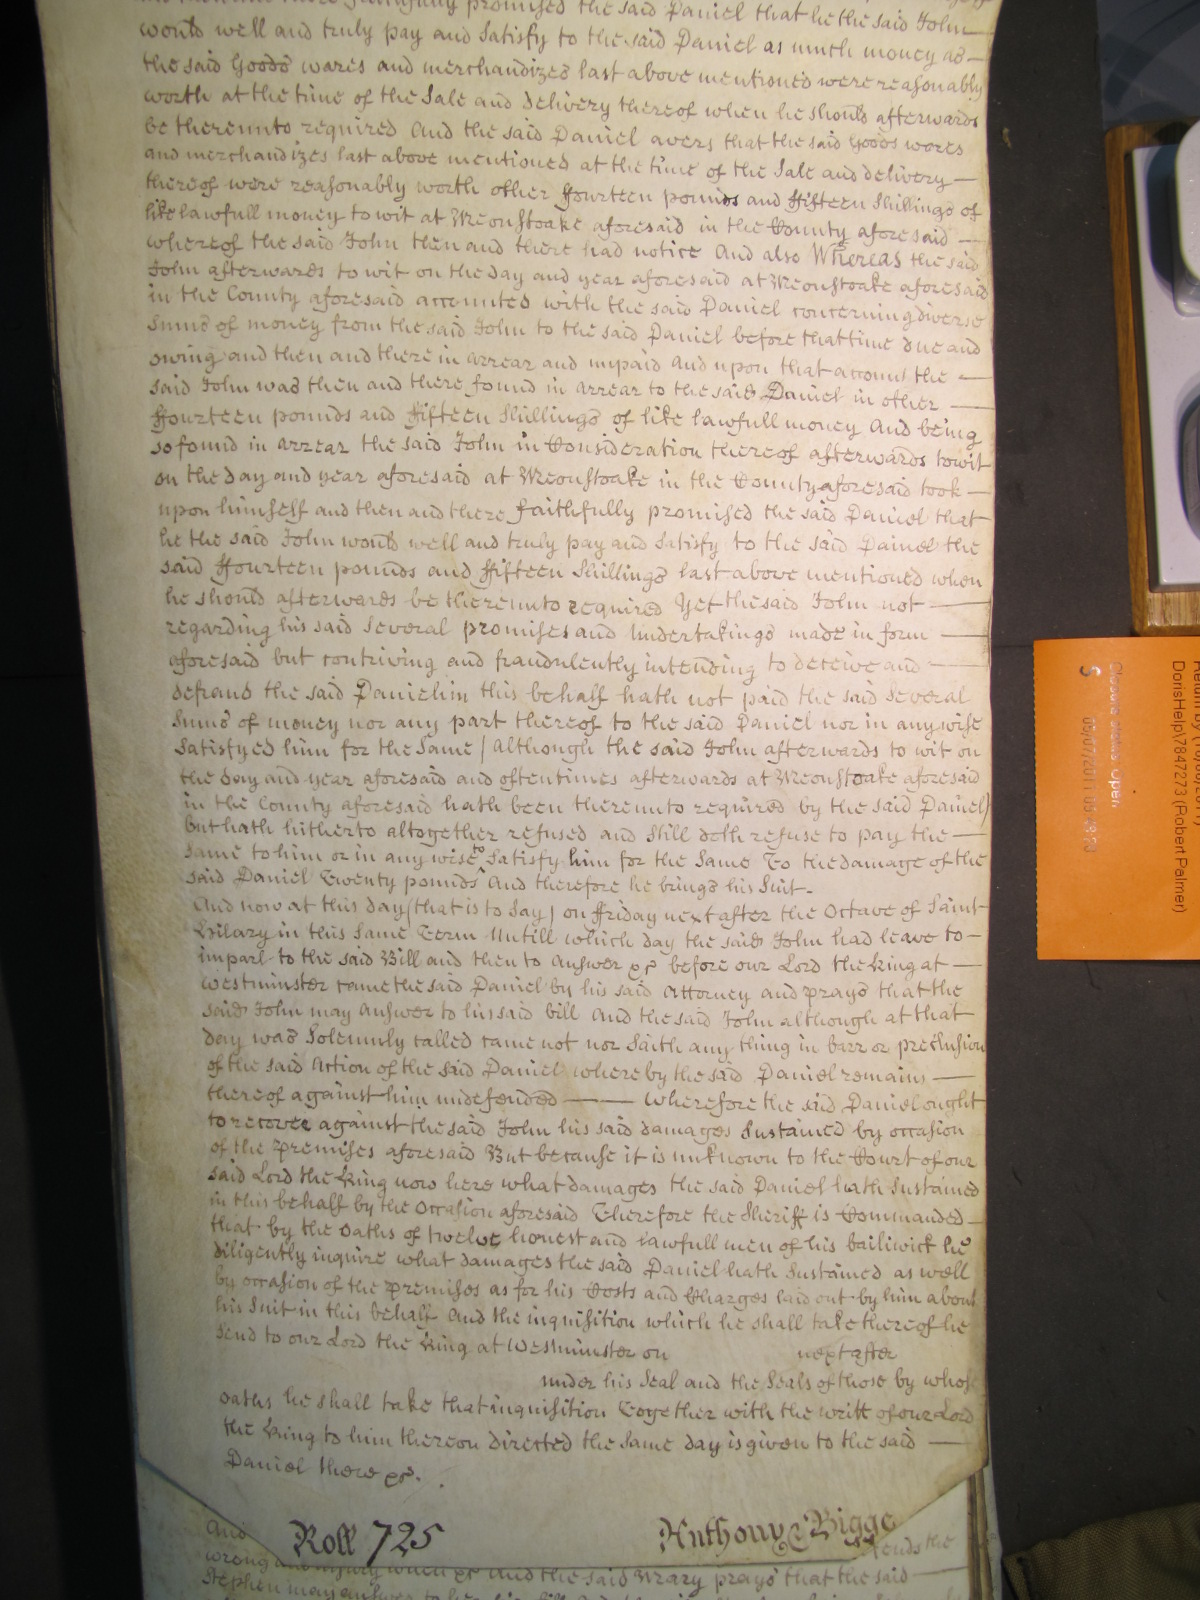 promised the said Daniel that he the said John
would well and truly pay and Satisfy to the said Daniel as much money as
the said Goods wares and merchandizes last above mentioned were reasonably
worth at the time of the Sale and delivery thereof when he should afterwards
be thereunto required And the said Daniel avers that the said Goods wares
and merchandizes last above mentioned at the time of the Sale and delivery
thereof were reasonably worth other ffourteen pounds and ffifteen Shillings of
like lawfull money to wit at Meonstoake aforesaid in the County aforesaid
whereof the said John then and there had notice And also Whereas the said
John afterwards to wit on the day and year aforesaid at Meonstoake aforesaid
in the County aforesaid accounted with the said Daniel concerning diverse
Sums of money from the said John to the said Daniel before that time due and
owing and then and there in arrear and unpaid And upon that account the
said John was then and there found in arrear to the said Daniel in other
ffourteen pounds and ffifteen Shillings of like lawfull money And being
so found in arrear the said John in Consideration thereof afterwards to wit
on the day and year aforesaid at Meonstoake in the County aforesaid took
upon himself and then and there faithfully promised the said Daniel that
he the said John would well and truly pay and Satisfy to the said Daniel the
said ffourteen pounds and ffifteen Shillings last above mentioned when
he should afterwards be thereunto required Yet the said John not
regarding his said Several promises and Undertakings made in form
aforesaid but contriving and fraudulently intending to deceive and
defraud the said Daniel in this behalf hath not paid the said Several
Sums of money nor any part thereof to the said Daniel nor in any wise
Satisfyed him for the Same (Although the said John afterwards to wit on
the day and year aforesaid and oftentimes afterwards at Meonstoake aforesaid
in the County aforesaid hath been thereunto required by the said Daniel)
but hath hitherto altogether refused and Still doth refuse to pay the
same to him or in any wise to Satisfy him for the Same To the damage of the
said Daniel Twenty pounds And therefore he brings his Suit.
And now at this day (that is to Say) on ffriday next after the Octave of Saint
Hilary in this Same Term Untill which day the said John had leave to
imparl to the said Bill and then to Answer &c before our Lord the King at
Westminster came the said Daniel by his said Attorney and prays that the
said John may Answer to his said bill And the said John although at that
day was Solemnly called came not nor Saith any thing in barr or preclusion
of the said Action of the said Daniel whereby the said Daniel remains
thereof against him undefended — Wherefore the said Daniel ought
to recover against the said John his said damages Sustained by occasion
of the premises aforesaid But because it is unknown to the Court of our
said Lord the King now here what damages the said Daniel hath Sustained
in this behalf by the Occasion aforesaid Therefore the Sheriff is Commanded
that by the Oaths of twelve honest and lawfull men of his bailiwick he
diligently inquire what damages the said Daniel hath Sustained as well
by occasion of the premises as for his Costs and Charges laid out by him about
his Suit in this behalf And the inquisition which he shall take thereof he
Send to our Lord the King at Westminster on next after
under his Seal and the Seals of those by whose
oaths he shall take that inquisition Together with the writt of our Lord
the King to him thereon directed the same day is given to the said
Daniel there &c.
Roll 725 Anthony Bigge
And
wrong and injury when &c And the said Mary prays that the said
Stephen may answer to her
DorisHelp\7847273 (Robert Palmer)
Closure status: Open
S